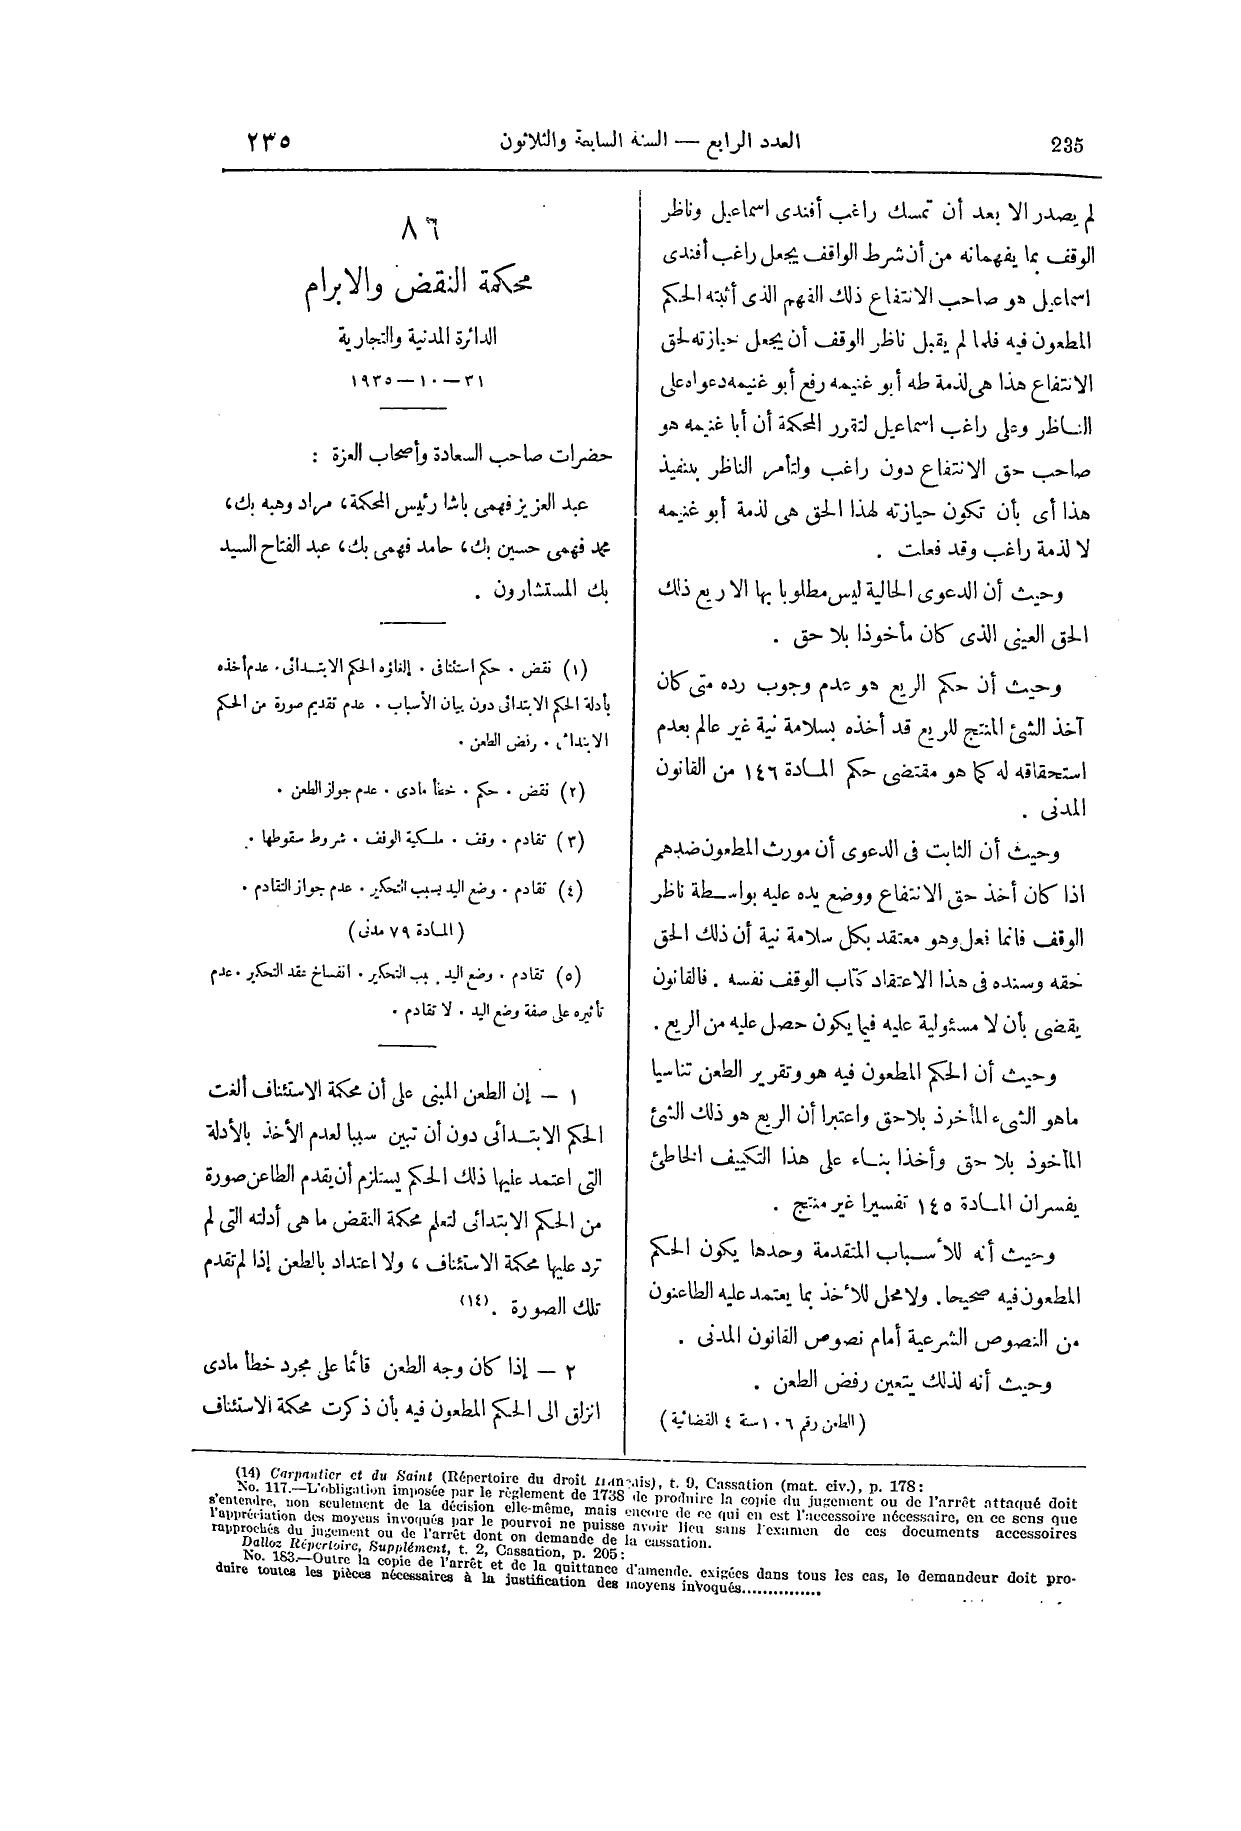 235
العدد الرابع — السنة السابعة والثلاثون
٢٣٥
لم يصدر الا بعد أن تمسك راغب أفندى اسماعيل وناظر
الوقف بما يفهمانه من أن شرط الواقف يجعل راغب أفندى
اسماعيل هو صاحب الانتفاع ذلك الفهم الذى أثبته الحكم
المطعون فيه فلما لم يقبل ناظر الوقف أن يجعل حيازته لحق
الانتفاع هذا هى لذمة طه أبو غنيمه رفع أبو غنيمه دعواه على
الناظر وعلى راغب اسماعيل لتقرر المحكمة أن أبا غنيمه هو
صاحب حق الانتفاع دون راغب ولتأمر الناظر بتنفيذ
هذا أى بأن تكون حيازته لهذا الحق هى لذمة أبو غنيمه
لا لذمة راغب وقد فعلت .
وحيث أن الدعوى الحالية ليس مطلوبا بها الا ريع ذلك
الحق العينى الذى كان مأخوذا بلا حق .
وحيث أن حكم الريع هو عدم وجوب رده متى كان
آخذ الشئ المنتج للريع قد أخذه بسلامة نية غير عالم بعدم
استحقاقه له كما هو مقتضى حكم المادة ١٤٦ من القانون
المدنى .
وحيث أن الثابت فى الدعوى أن مورث المطعون ضدهم
اذا كان أخذ حق الانتفاع ووضع يده عليه بواسطة ناظر
الوقف فانما فعل وهو معتقد بكل سلامة نية أن ذلك الحق
حقه وسنده فى هذا الاعتقاد كتاب الوقف نفسه . فالقانون
يقضى بأن لا مسئولية عليه فيما يكون حصل عليه من الريع .
وحيث أن الحكم المطعون فيه هو وتقرير الطعن تناسيا
ماهو الشىء المأخوذ بلاحق واعتبرا أن الريع هو ذلك الشئ
المأخوذ بلا حق وأخذا بناء على هذا التكييف الخاطئ
يفسران المادة ١٤٥ تفسيرا غير منتج .
وحيث أنه للأسباب المتقدمة وحدها يكون الحكم
المطعون فيه صحيحا. ولا محل للأخذ بما يعتمد عليه الطاعنون
من النصوص الشرعية أمام نصوص القانون المدنى .
وحيث أنه لذلك يتعين رفض الطعن .
(الطعن رقم ١٠٦ سنة ٤ القضائية)
٨٦
محكمة النقض والابرام
الدائرة المدنية والتجارية
٣١-١٠-١٩٣٥
حضرات صاحب السعادة وأصحاب العزة :
عبد العزيز فهمى باشا رئيس المحكمة، مراد وهبه بك،
محمد فهمى حسين بك، حامد فهمى بك، عبد الفتاح السيد
بك المستشارون .
(١) نقض . حكم استئنافى . إلغاؤه الحكم الابتدائى. عدم أخذه
بأدلة الحكم الابتدائى دون بيان الأسباب . عدم تقديم صورة من الحكم
الابتدائى . رفض الطعن .
(٢) نقض . حكم . خطأ مادى . عدم جواز الطعن .
(٣) تقادم . وقف . ملكية الوقف . شروط سقوطها .
(٤) تقادم . وضع اليد بسبب التحكير . عدم جواز التقادم .
(المادة ٧٩ مدنى)
(٥) تقادم . وضع اليد بسبب التحكير . انفساخ عقد التحكير . عدم
تأثيره على صفة وضع اليد . لا تقادم .
١ - إن الطعن المبنى على أن محكمة الاستئناف ألغت
الحكم الابتدائى دون أن تبين سببا لعدم الأخذ بالأدلة
التى اعتمد عليها ذلك الحكم يستلزم أن يقدم الطاعن صورة
من الحكم الابتدائى لتعلم محكمة النقض ما هى أدلته التى لم
ترد عليها محكمة الاستئناف ، ولا اعتداد بالطعن إذا لم تقدم
تلك الصورة .(١٤)
٢ - إذا كان وجه الطعن قائما على مجرد خطأ مادى
انزلق الى الحكم المطعون فيه بأن ذكرت محكمة الاستئناف
(14) Carpantier et du Saint (Répertoire du droit français), t. 9, Cassation (mat. civ.), p. 178:
No. 117.—L'obligation imposée par le règlement de 1738 de produire la copie du jugement ou de l'arrêt attaqué doit
s'entendre, non seulement de la décision elle-même, mais encore de ce qui en est l'accessoire nécessaire, en ce sens que
l'appréciation des moyens invoqués par le pourvoi ne puisse avoir lieu sans l'examen de ces documents accessoires
rapprochés du jugement ou de l'arrêt dont on demande de la cassation.
Dalloz Répertoire, Supplément, t. 2, Cassation, p. 205:
No. 183.—Outre la copie de l'arrêt et de la quittance d'amende, exigées dans tous les cas, le demandeur doit pro-
duire toutes les pièces nécessaires à la justification des moyens invoqués...............